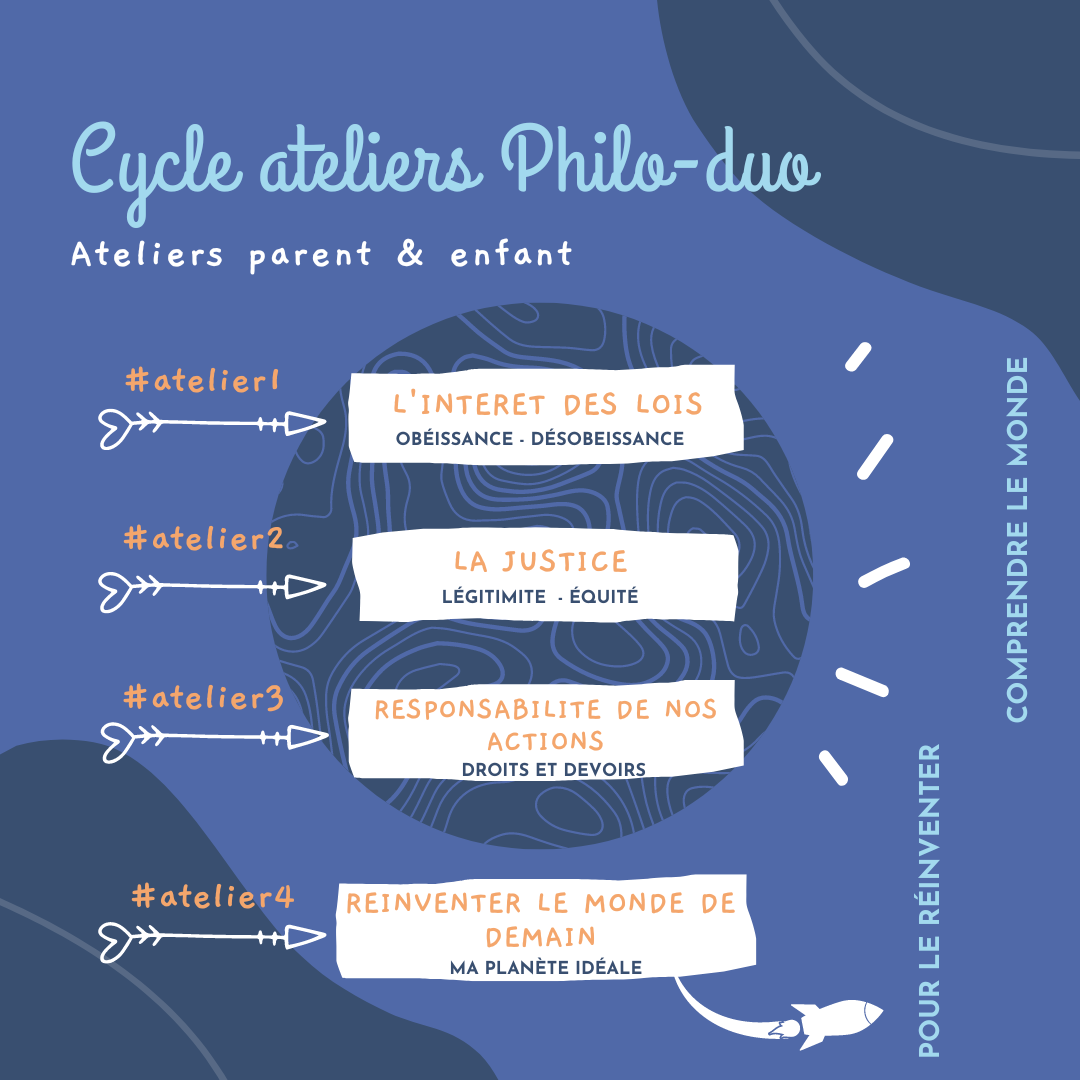 Cycle ateliers Philo-duo
Ateliers parent & enfant
#atelier1
L'INTERET DES LOIS
OBÉISSANCE - DÉSOBEISSANCE
#atelier2
LA JUSTICE
LÉGITIMITE - ÉQUITÉ
#atelier3
RESPONSABILITE DE NOS
ACTIONS
DROITS ET DEVOIRS
#atelier4
REINVENTER LE MONDE DE
DEMAIN
MA PLANÈTE IDÉALE
COMPRENDRE LE MONDE
POUR LE RÉINVENTER